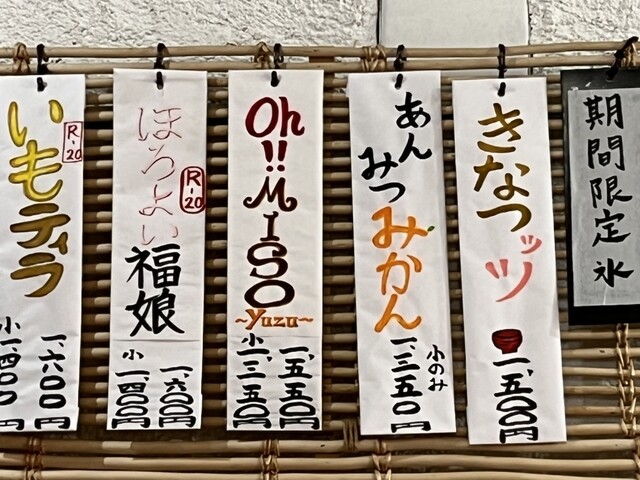 期間限定氷
きなつッツ
一、五〇〇円
あんみつみかん
小のみ
一、三五〇円
Oh!!MISO
~Yuzu~
一、五五〇円
小一、三五〇円
ほろよい福娘
R-20
一、六〇〇円
小一四〇〇円
いもティラ
R-20
一、六〇〇円
小一四〇〇円